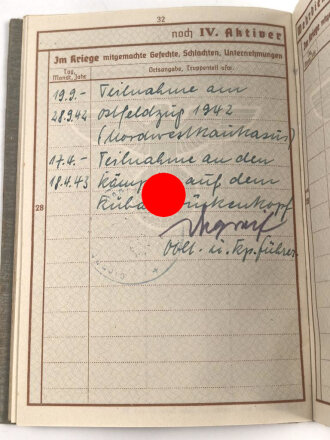 32
noch IV. Aktiver
Im Kriege mitgemachte Gefechte, Schlachten, Unternehmungen
Tag, Monat, Jahr
Ortsangabe, Truppenteil usw.
19.9.- Teilnahme am
28.9.42 Ostfeldzug 1942
(Nordwestkaukasus)
17.4.- Teilnahme an den
18.4.43 Kämp auf dem
Kuba ückenkopf
28
Oblt. u. Kp. führer